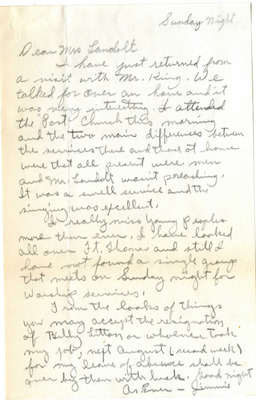 Sunday Night
Dear Mrs Landolt
I have just returned from
a visit with Mr. King. We
talked for over an hour and it
was very interesting. I attended
the Post Church this morning
and the two main differences between
the services there and those at home
were that all present were men
and Mr. Landolt wasn't preaching.
It was a swell service and the
singing was excellent.
I really miss Young Peoples
more than ever. I have looked
all over Ft. Thomas and still I
have not found a single group
that meets on Sunday night for
worship services.
From the looks of things
you may accept the resignation
of Billy Sitton or whoever took
my job, next August (second week)
for my leave of absence shall be
over by then with luck. Good night
As Ever — Jimmie